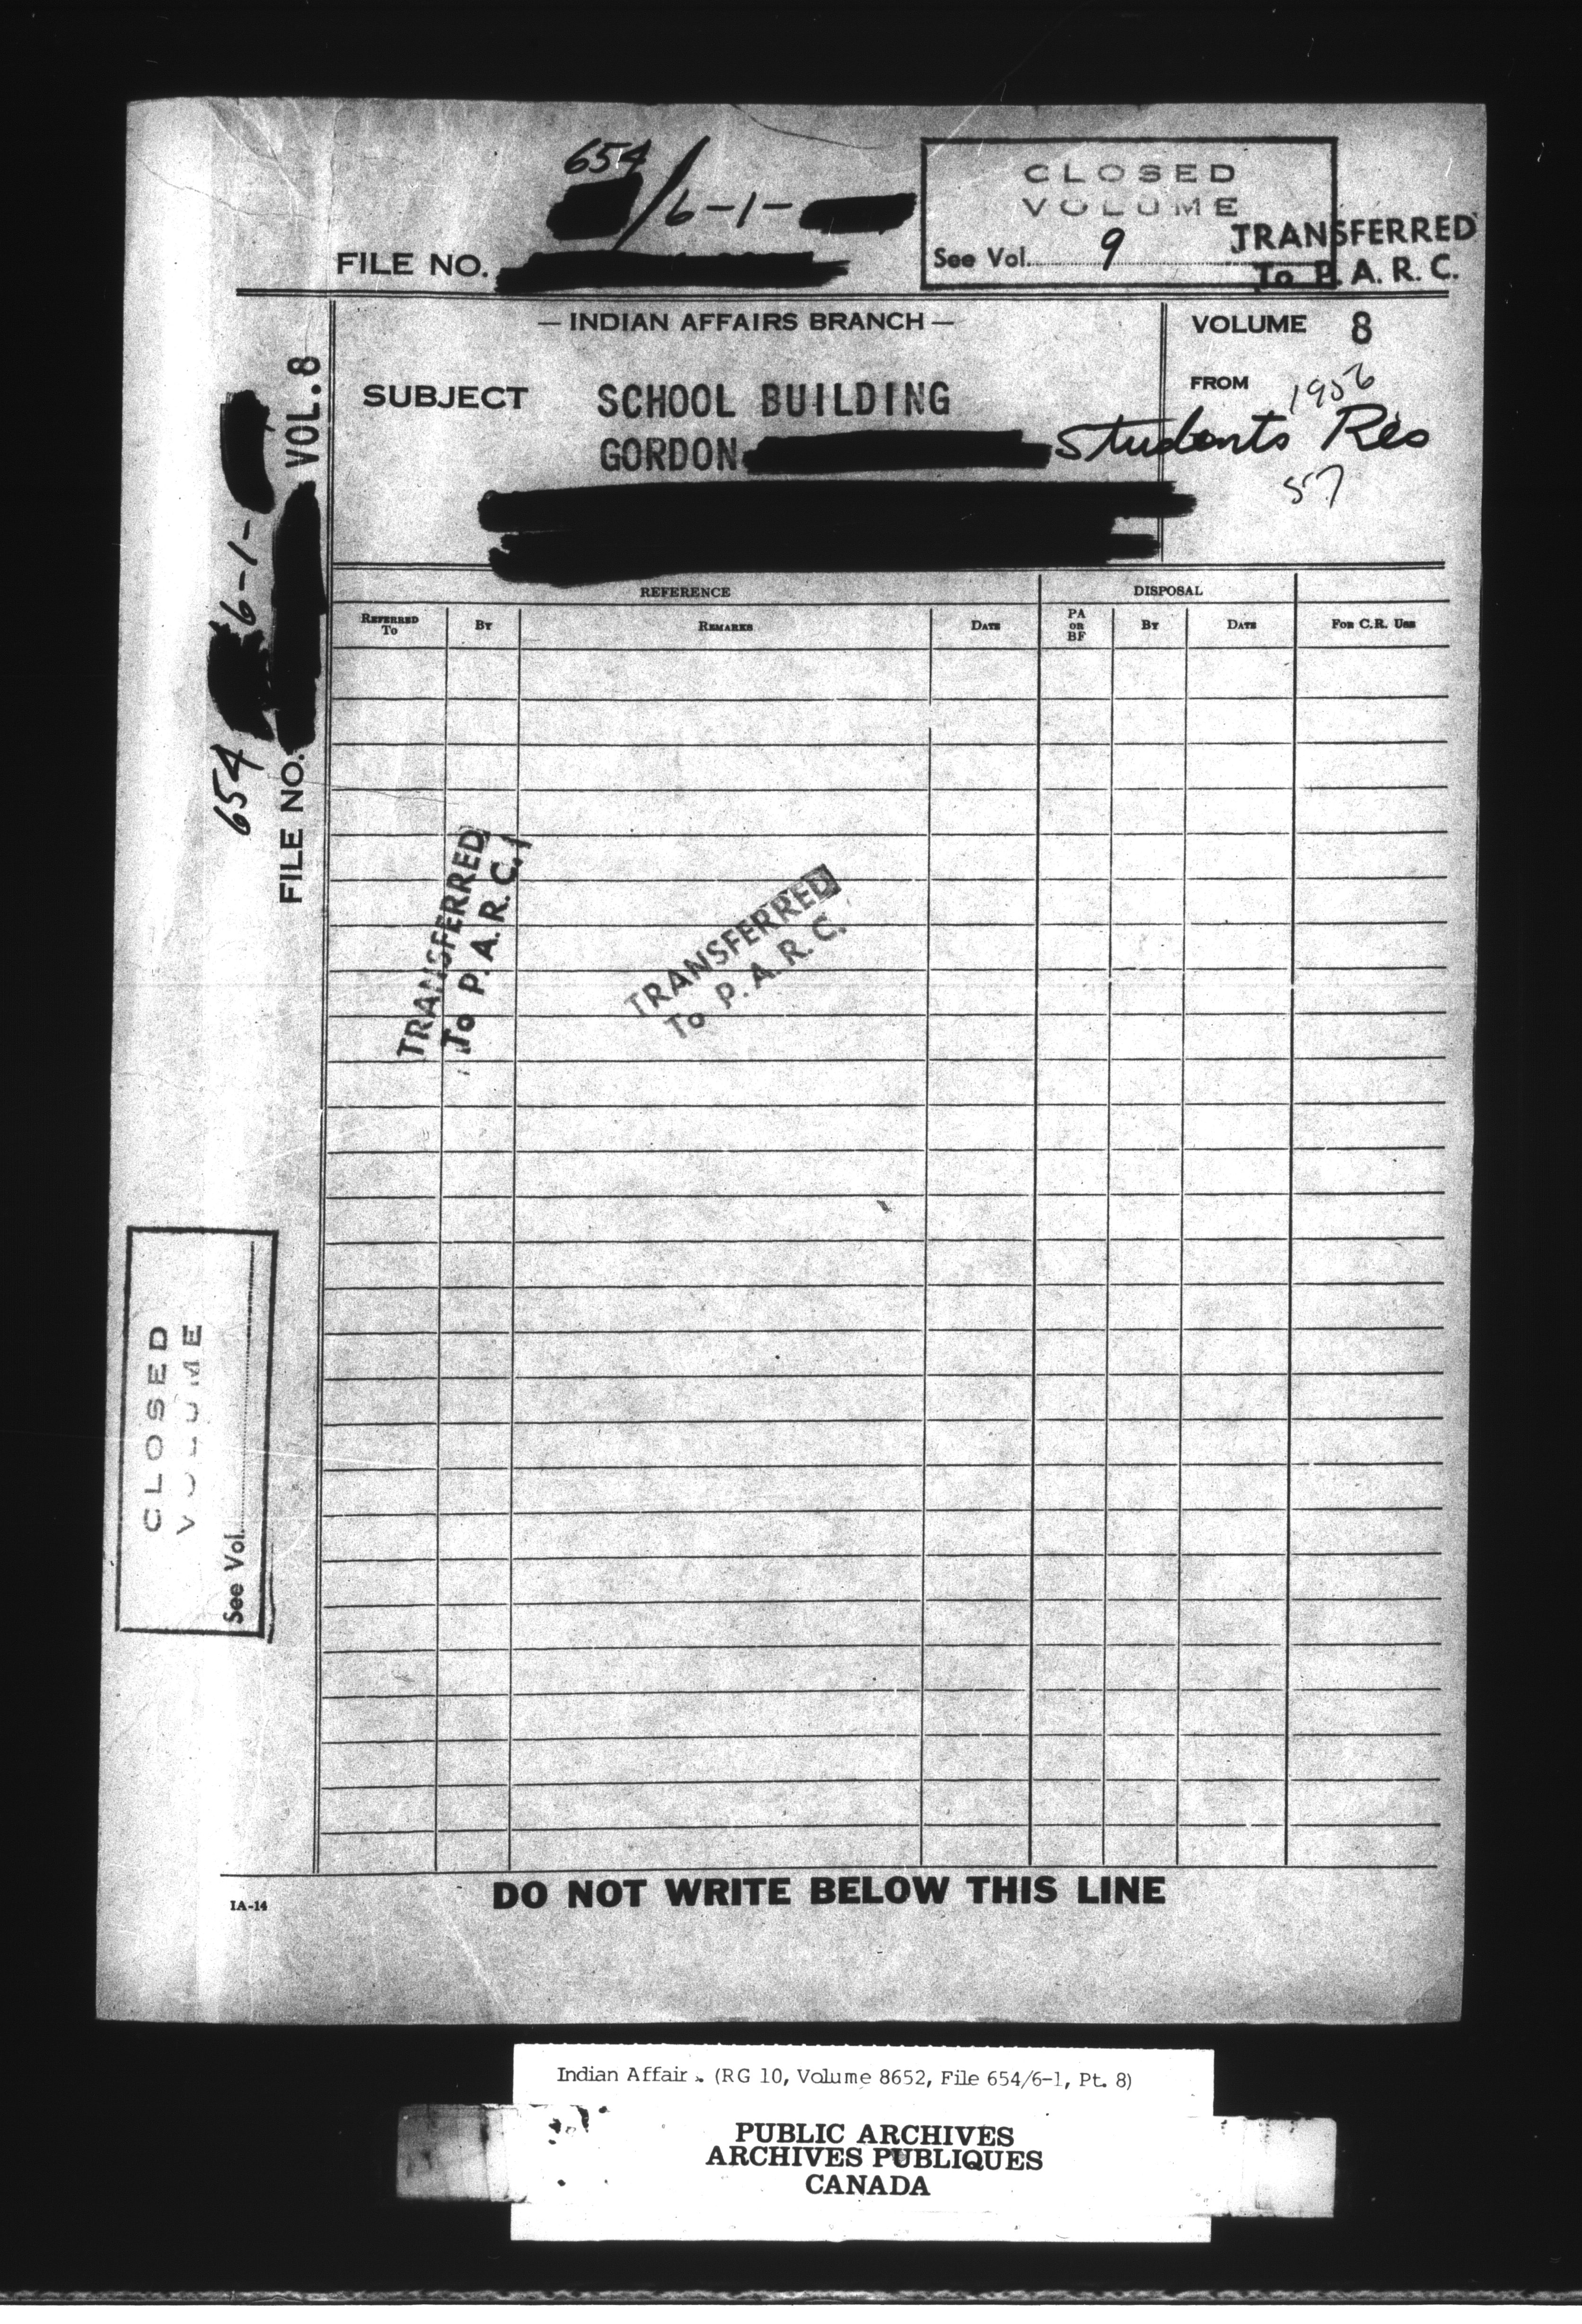 654
/6-1-
FILE NO.
CLOSED
VOLUME
See Vol. 9
TRANSFERRED
To P. A. R. C.
— INDIAN AFFAIRS BRANCH —
VOLUME 8
SUBJECT SCHOOL BUILDING
FROM 1956
GORDON Students Res
57
654 6-1-
FILE NO. VOL. 8
REFERENCE DISPOSAL
REFERRED TO BY REMARKS DATE PA OR BF BY DATE FOR C.R. USE
TRANSFERRED
To P. A. R. C.
TRANSFERRED
To P. A. R. C.
CLOSED
VOLUME
See Vol.
IA-14
DO NOT WRITE BELOW THIS LINE
Indian Affairs. (RG 10, Volume 8652, File 654/6-1, Pt. 8)
PUBLIC ARCHIVES
ARCHIVES PUBLIQUES
CANADA